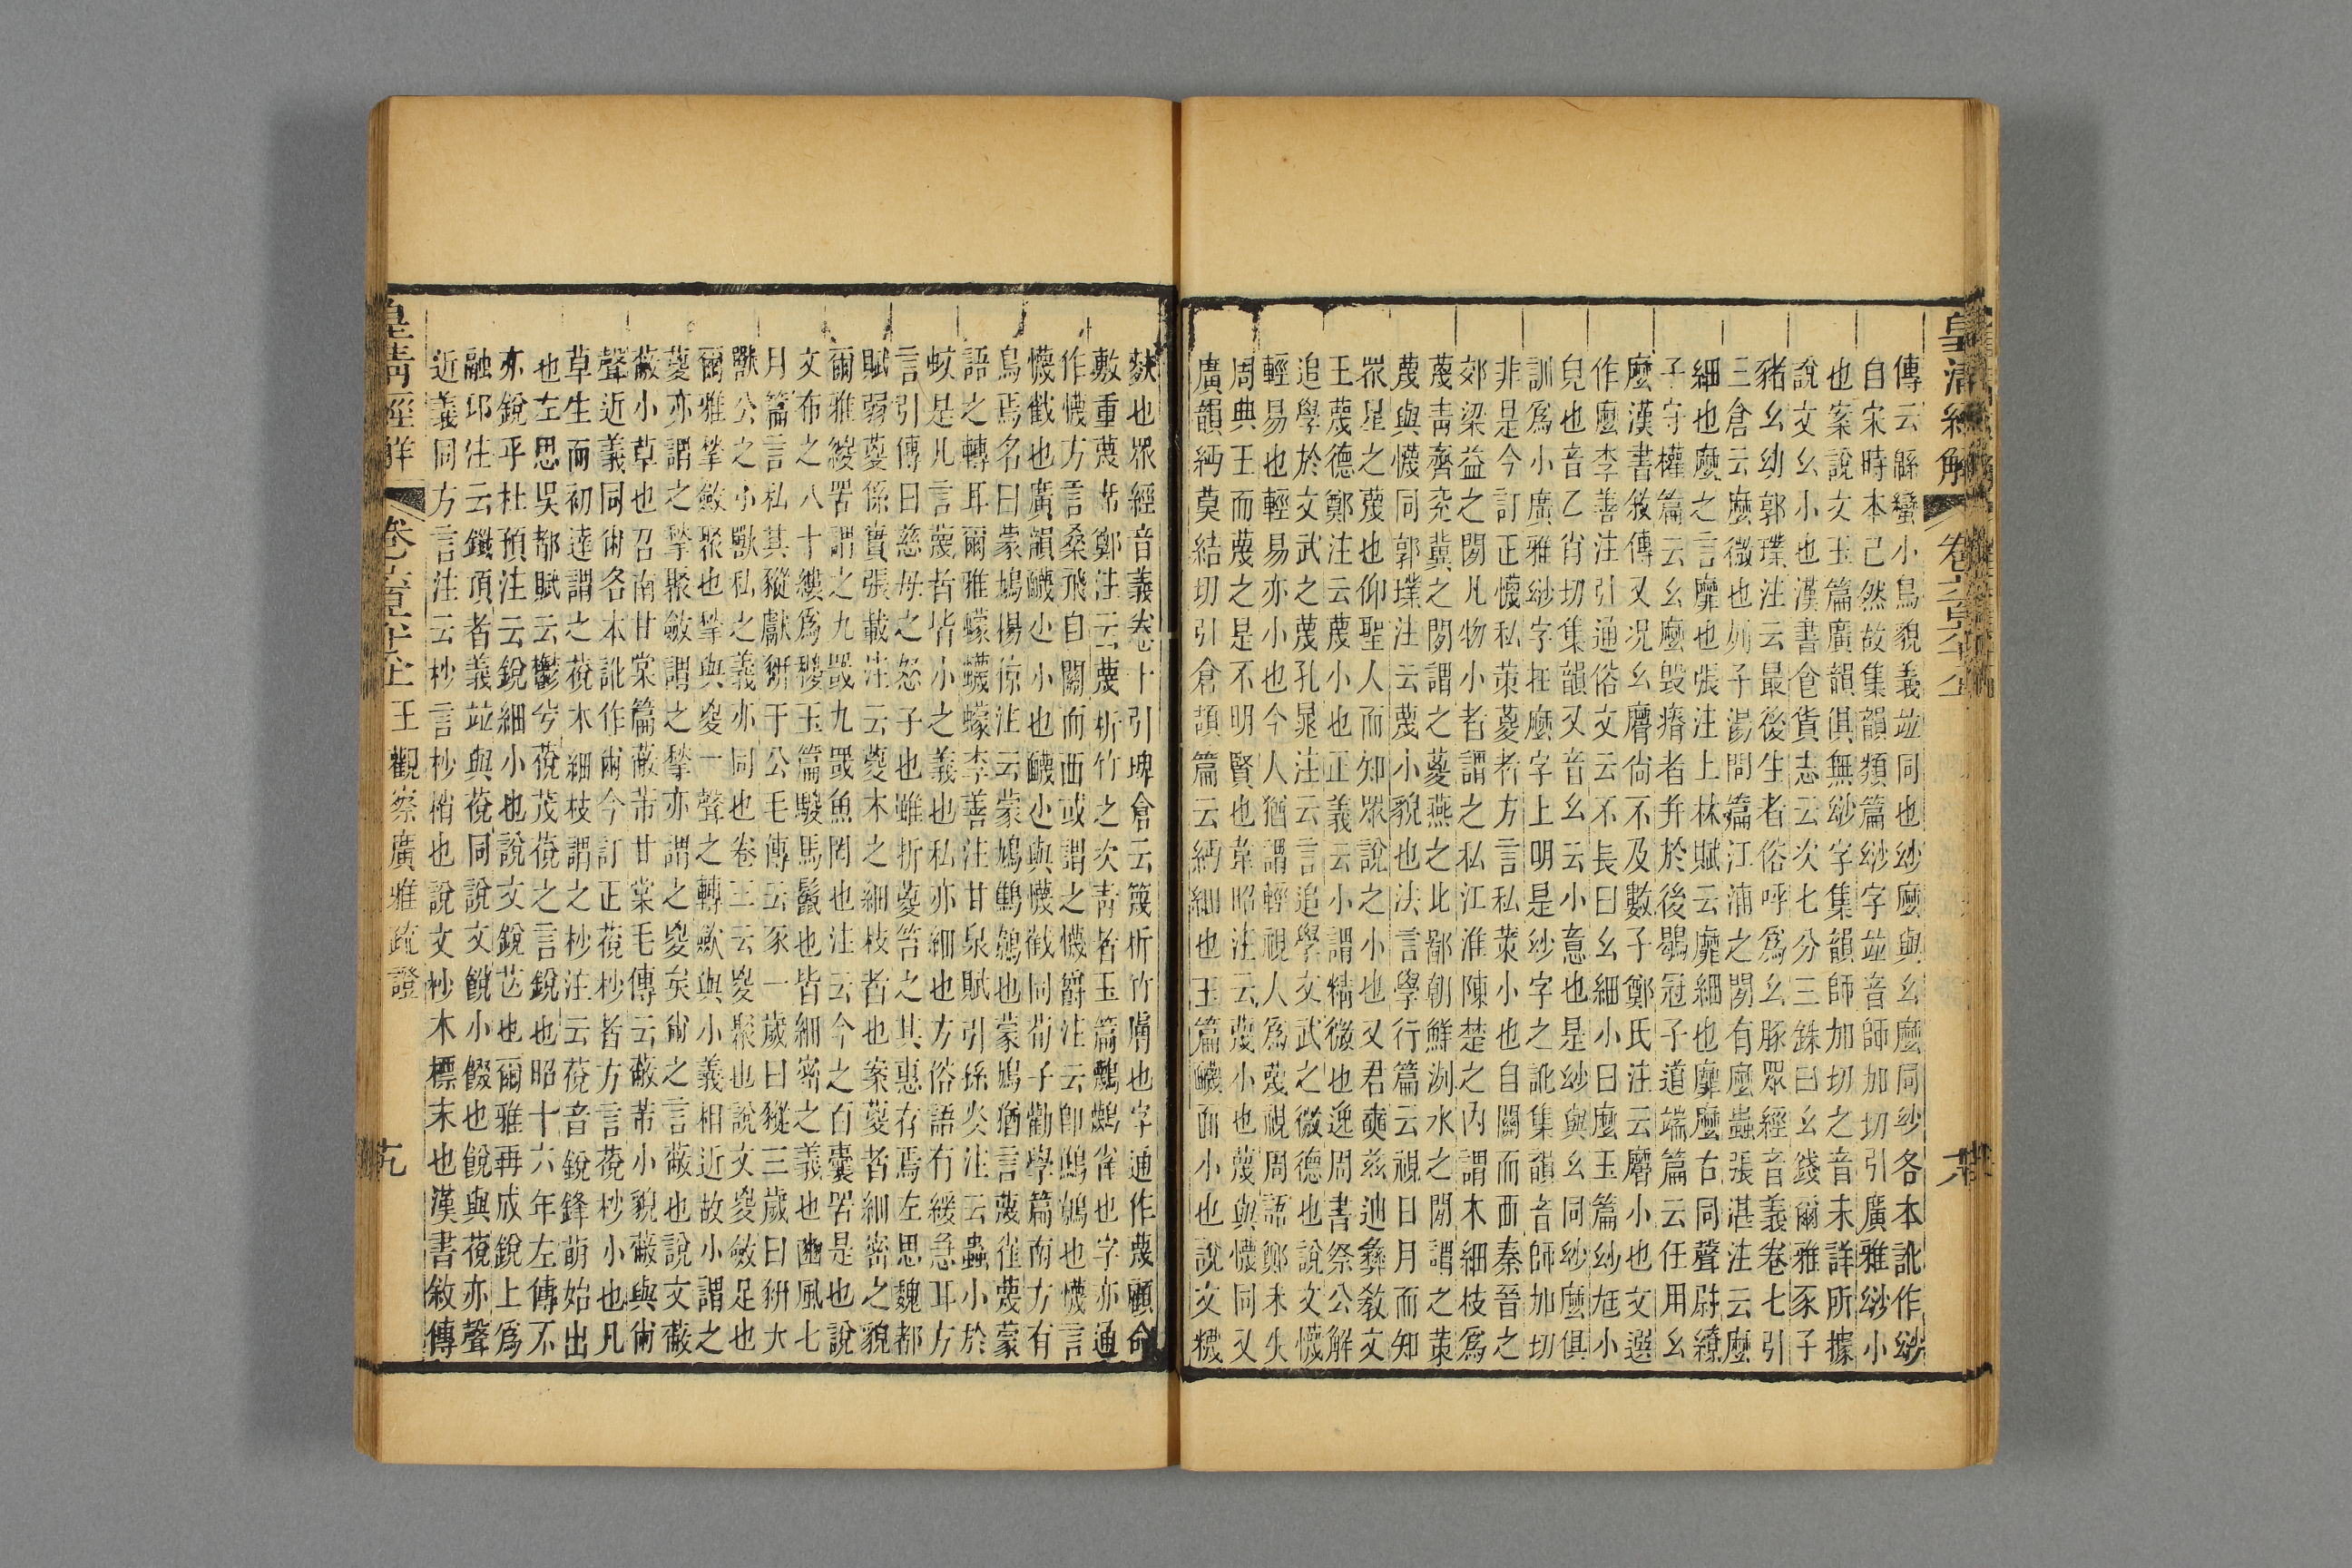 皇清經解
傳云緜蠻小鳥貌義竝同也紗麼與幺麼同紗各本訛作紗
自宋時本已然故集韻類篇紗字竝音師加切引廣雅紗小
也案說文玉篇廣韻俱無紗字集韻師加切之音未詳所據
說文幺小也漢書食貨志云次七分三銖曰幺錢爾雅豕子
豬幺幼郭璞注云最後生者俗呼爲幺豚眾經音義卷七引
三倉云麼微也列子湯問篇江浦之閒有麼蟲張湛注云麼
細也麼之言靡也張注上林賦云靡細也靡麼古同聲尉繚
子守權篇云幺麼毀瘠者并於後鶡冠子道端篇云任用幺
麼漢書敘傳又况幺麿尙不及數子鄭氏注云麿小也文選
作麼李善注引通俗文云不長曰幺細小曰麼玉篇紗尩小
皃也音乙肖切集韻又音幺云小意也是紗與幺同紗麼俱
訓爲小廣雅紗字在麼字上明是紗字之訛集韻音師加切
非是今訂正懱私策葼者方言私策小也自關而西秦晉之
郊梁益之閒凡物小者謂之私江淮陳楚之內謂木細枝爲
蔑靑齊兗冀之閒謂之葼燕之北鄙朝鮮洌水之閒謂之策
蔑與懱同郭璞注云蔑小貌也法言學行篇云視日月而知
眾星之蔑也仰聖人而知眾說之小也又君奭兹迪彝敎文
王蔑德鄭注云蔑小也正義云小謂精微也逸周書祭公解
追學於文武之蔑孔晁注云言追學文武之微德也說文懱
輕易也輕易亦小也今人猶謂輕視人爲蔑視周語鄭未失
周典王而蔑之是不明賢也韋昭注云蔑小也蔑與懱同又
廣韻䌩莫結切引倉頡篇云䌩細也玉篇䁾面小也說文䊳
麩也眾經音義卷十引埤倉云篾析竹膚也字通作蔑顧命
敷重蔑席鄭注云蔑析竹之次靑者玉篇鸋鴂雀也字亦通
作懱方言桑飛自關而西或謂之懱爵注云卽鴟鴞也懱言
懱㦰也廣韻䘊尐小也䘊尐與懱㦰同荀子勸學篇南方有
鳥焉名曰蒙鳩楊倞注云蒙鳩鷦鷯也蒙鳩猶言蔑雀蔑蒙
語之轉耳爾雅蠓蠛蠓李善注甘泉賦引孫炎注云蟲小於
蚊是凡言蔑者皆小之義也私亦細也方俗語有緩急耳方
言引傳曰慈母之怒子也雖折葼笞之其惠存焉左思魏都
賦弱葼係實張載注云葼木之細枝者也案葼者細密之貌
爾雅緵罟謂之九罭九罭魚罔也注云今之百囊罟是也說
文布之八十縷爲稯玉篇騣馬鬣也皆細密之義也豳風七
月篇言私其豵獻豜于公毛傳云豕一歲曰豵三歲曰豜大
獸公之小獸私之義亦同也卷三云㚇聚也說文㚇斂足也
爾雅揫斂聚也揫與㚇一聲之轉歛與小義相近故小謂之
葼亦謂之揫聚斂謂之揫亦謂之㚇矣㡀之言蔽也說文蔽
蔽小草也召南甘棠篇蔽芾甘棠毛傳云蔽芾小貌蔽與㡀
聲近義同㡀各本訛作㡀今訂正䓲杪者方言䓲杪小也凡
草生而初達謂之䓲木細枝謂之杪注云䓲音銳鋒萌始出
也左思吳都賦云鬱兮䓲茂䓲之言銳也昭十六年左傳不
亦銳乎杜預注云銳細小也說文銳芒也爾雅再成銳上爲
融邱注云鑯頂者義竝與䓲同說文䬽小餟也䬽與䓲亦聲
近義同方言注云杪言杪梢也說文杪木標末也漢書敘傳
皇淸經解
王觀察廣雅疏證